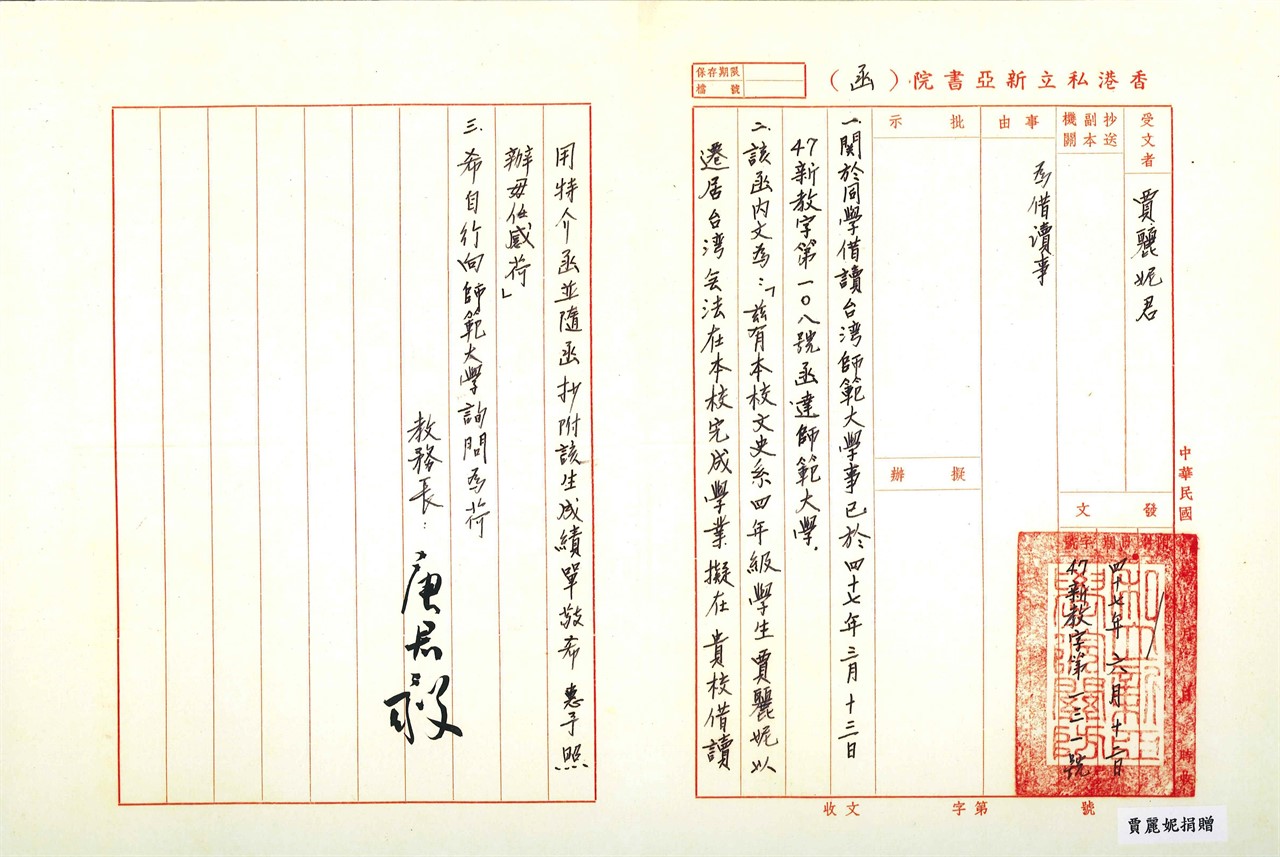 香港私立新亞書院（函）
保存期限
檔號
受文者
賈麗妮君
抄送
副本
機關
事由
為借讀事
批示
擬辦
發文
字號
日期
四十七年六月十二日
47新教字第一三一號
中華民國
一、關於同學借讀台湾師範大學事已於四十七年三月十三日
47新教字第一〇八號函達師範大學.
二、該函內文為：「茲有本校文史系四年級學生賈麗妮以
遷居台湾無法在本校完成學業擬在貴校借讀
用特介函並隨函抄附該生成績單敬希 惠予照
辦毋任感荷」
三、希自行向師範大學詢問為荷
教務長：
唐君毅
收文 字第 號
賈麗妮捐贈